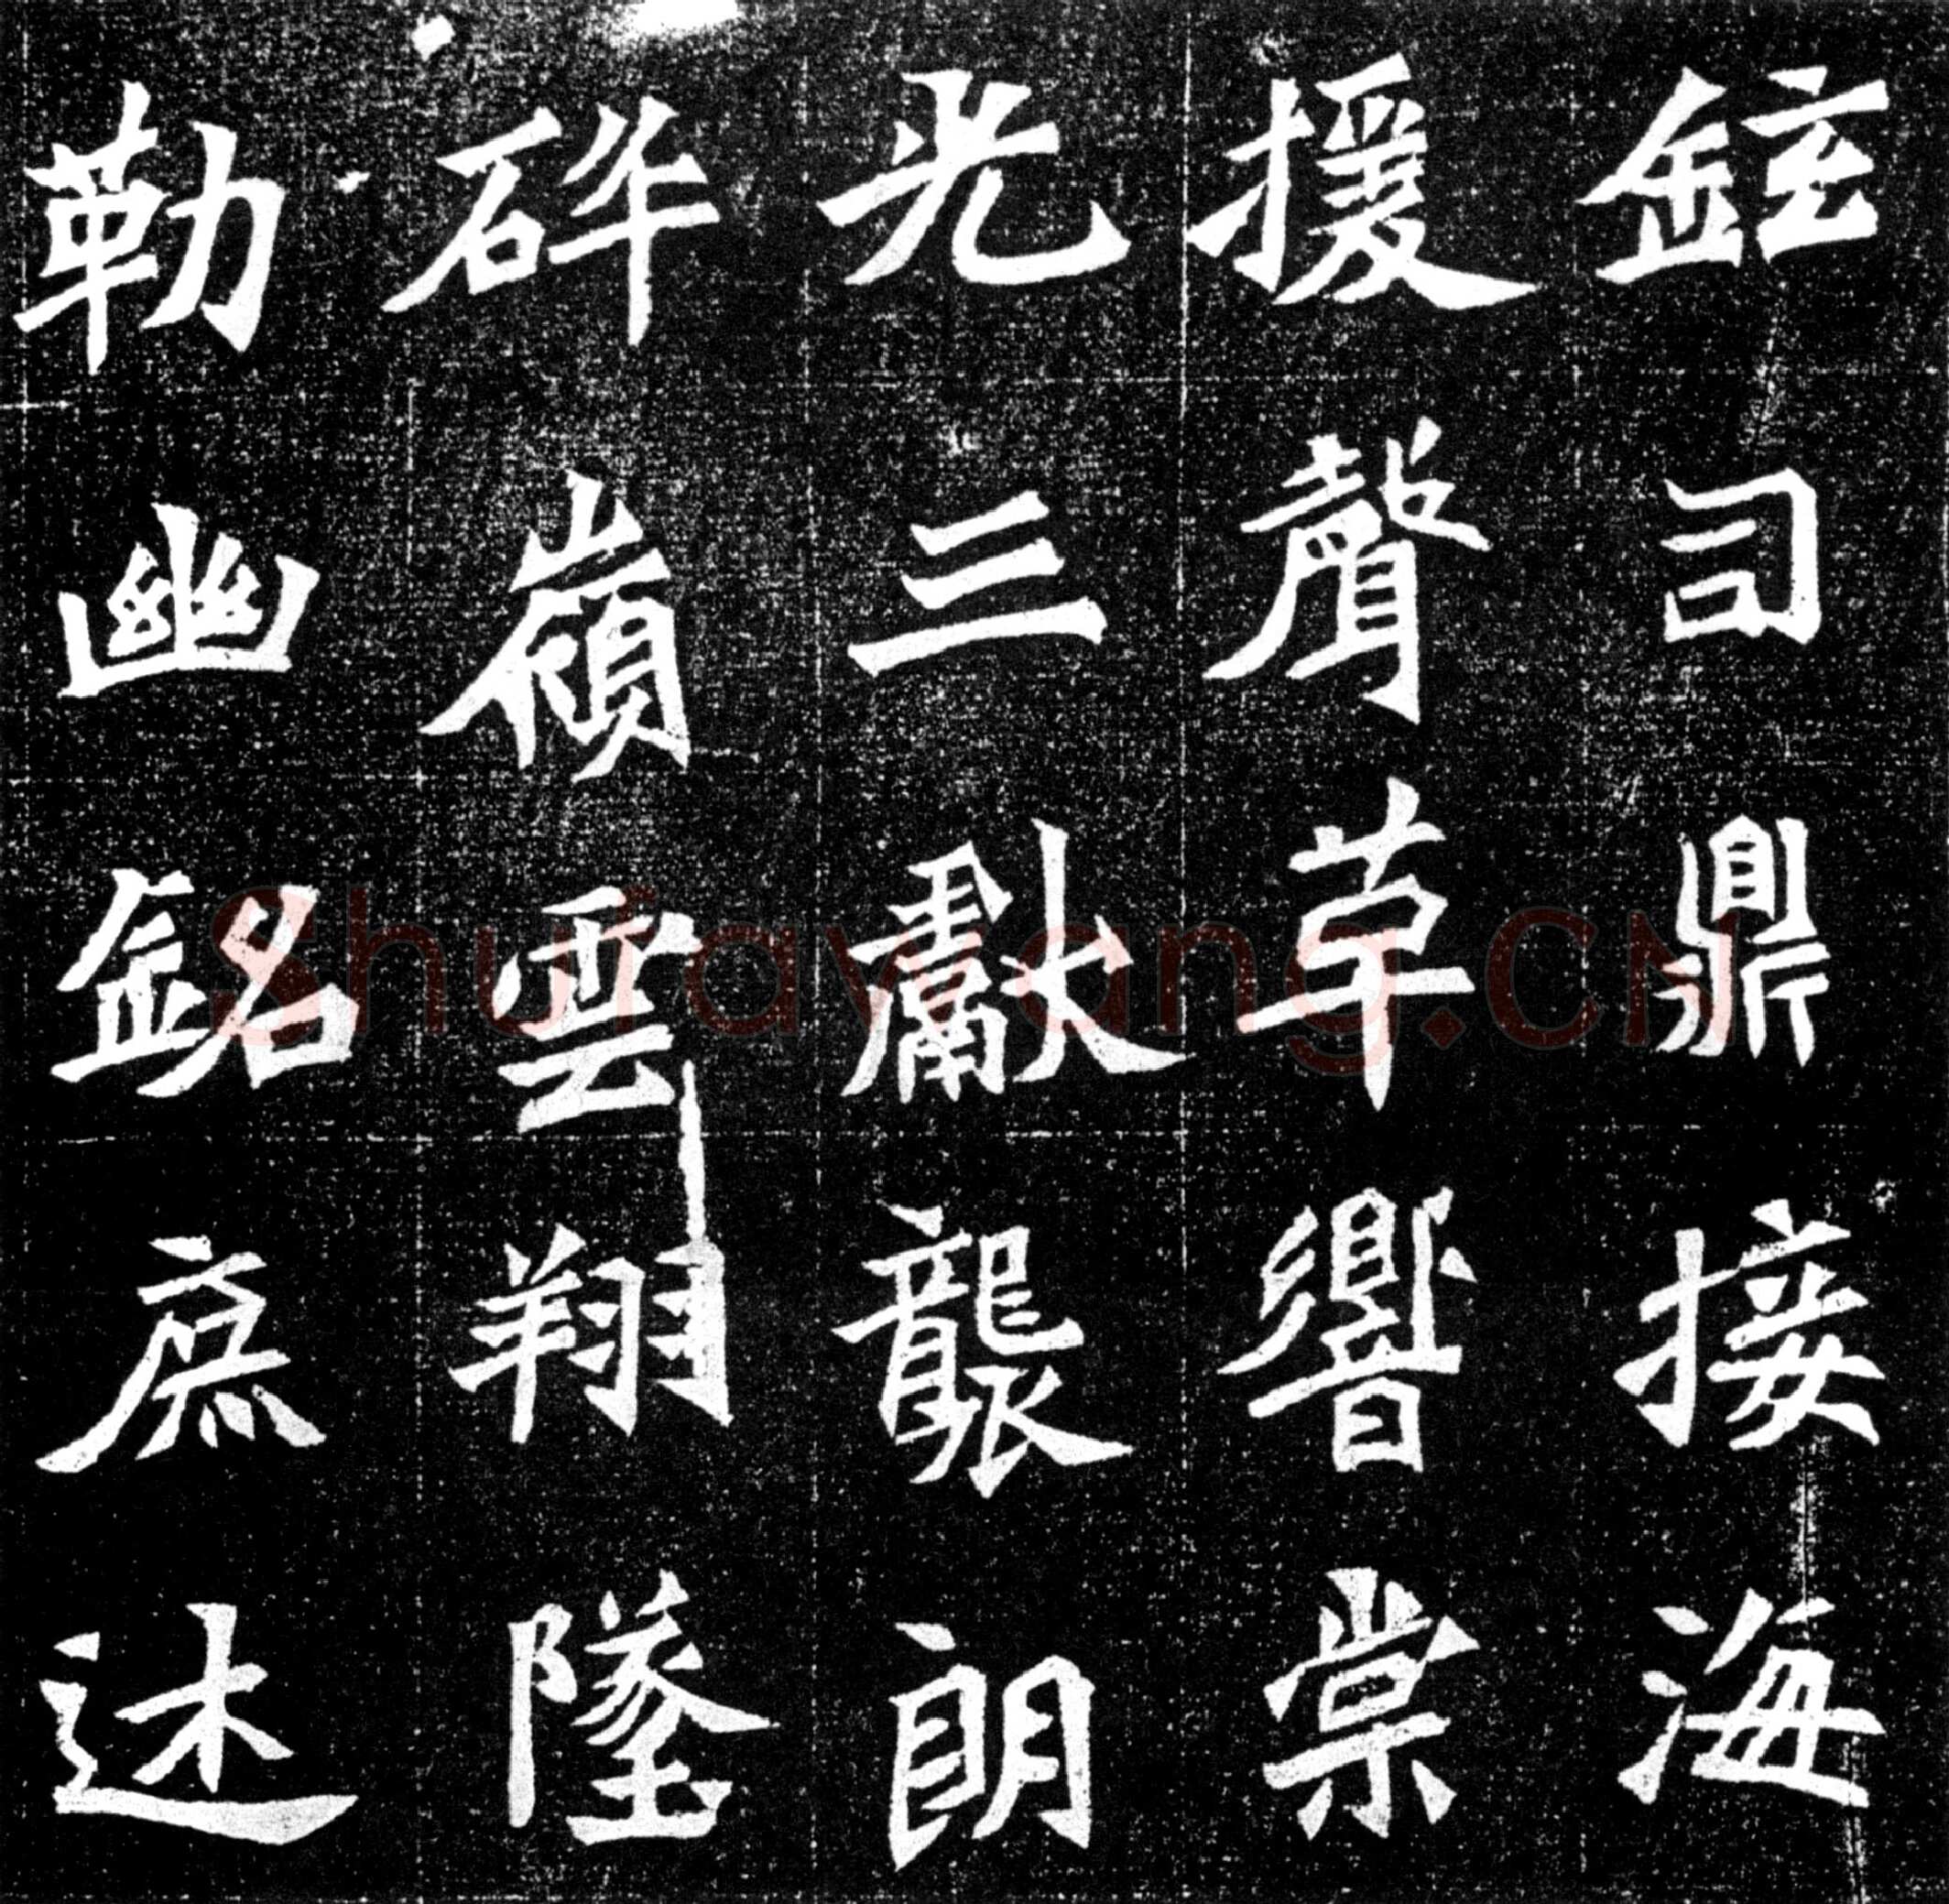 鉉司鼎接海
援聲草響棠
光三獻襲朗
碎嶺雲翔墜
勒幽銘庶述
Shufawang.CN